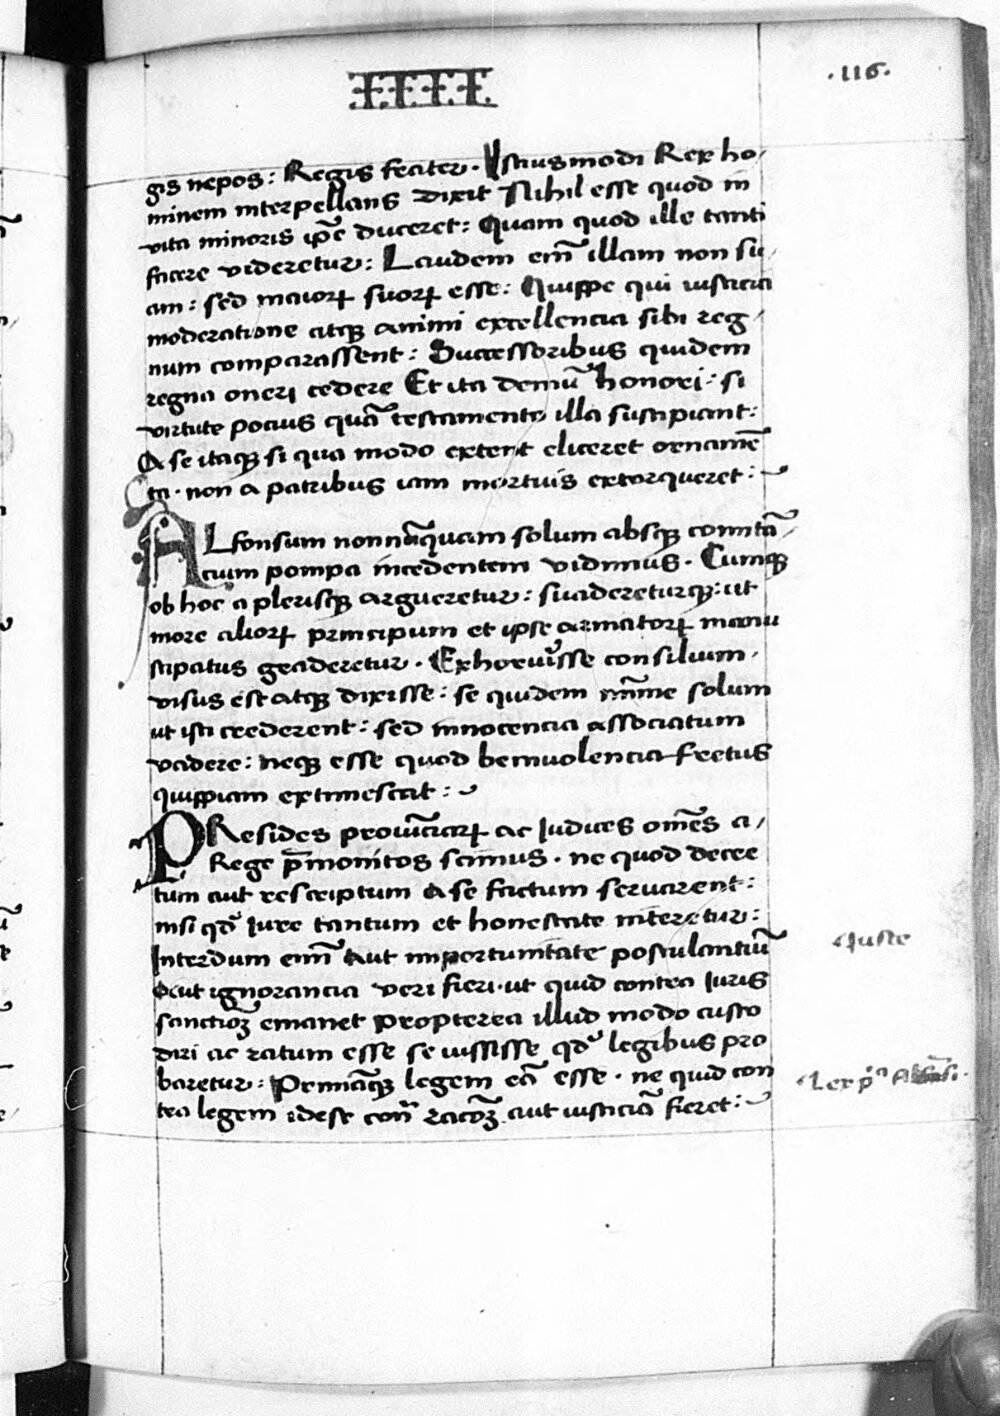 IIII
.116.
gis nepos: Regis frater. Istiusmodi Rex ho/
minem interpellans dixit Nihil esse quod in
vita minoris ip̄e duceret: Quam quod ille tanti
facere videretur: Laudem em̄ illam non su/
am: sed maioꝝ suoꝝ esse: Quippe qui iusticia
moderatione atqꝫ animi excellencia sibi reg/
num comparassent: Successoribus quidem
regna oneri cedere Et ita demū honori: si
virtute pocius quā testamento illa suscipiant:
A se itaqꝫ si qua modo extent eliceret ornamē
ta. non a patribus iam mortuis extorqueret:
ALfonsum nonnūquam solum absqꝫ comitā/
cium pompa incedentem vidimus. Cumqꝫ
ob hoc a plerisqꝫ argueretur: suadereturqꝫ: ut
more alioꝝ principum et ipse armatoꝝ manu
stipatus graderetur. Exhorruisse consilium.
visus est atqꝫ dixisse: se quidem mīme solum
ut isti crederent: sed innocencia associatum
vadere: neqꝫ esse quod beniuolencia fretus
quippiam extimescat:
PResides prouinciaꝝ ac Iudices om̄es a/
Rege p̄monitos scimus. ne quod decre
tum aut rescriptum a se factum seruarent:
nisi qd̄ Iure tantum et honestate niteretur:
Interdum enim̄ Aut importunitate postulantiū
Aut ignorancia veri fieri. ut quid contra Iuris
sanctioꝫ emanet Propterea illud modo custo
diri ac ratum esse se iussisse qd̄ legibus pro
baretur: Primāqꝫ legem eā esse. ne quid con
tra legem idest con̄ racōꝫ aut iusticiā fieret:
Iuste
Lex p̄ᵃ Alfonsi.